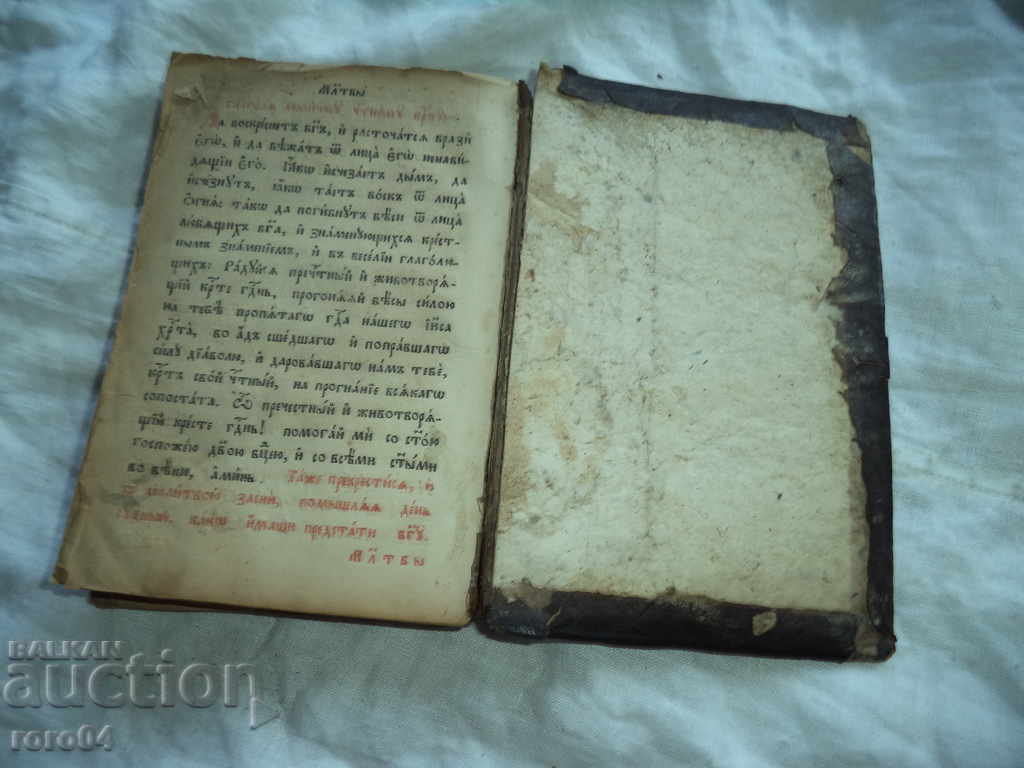 МЛ҃твы
Да воскреснетъ бг҃ъ, и҆ расточатсѧ вразѝ
є҆гѡ̀, и҆ да бѣжатъ ѿ лица̀ є҆гѡ̀ ненави-
дѧщїи є҆го̀. Ꙗ҆́кѡ и҆счеза́етъ ды́мъ, да
и҆сче́знꙋтъ, ꙗ҆́кѡ та́етъ во́скъ ѿ лица̀
ѻ҆гнѧ̀: та́кѡ да поги́бнꙋтъ бѣ́си ѿ лица̀
лю́бѧщихъ бг҃а, и҆ зна́менꙋющихсѧ кре́ст-
нымъ зна́менїемъ, и҆ въ весе́лїи глаго́лю-
щихъ: Ра́дꙋйсѧ пречⷭ҇тный и҆ животворѧ́-
щїй крⷭ҇те гдⷭ҇нь, прогонѧ́ѧй бѣ́сы си́лою
на тебѣ̀ пропѧ́тагѡ гдⷭ҇а на́шегѡ і҆и҃са
хрⷭ҇та̀, во а҆́дъ сше́дшагѡ и҆ попра́вшагѡ
си́лꙋ дїа́волю, и҆ дарова́вшагѡ на́мъ тебѐ,
крⷭ҇тъ сво́й чⷭ҇тный, на прогна́нїе всѧ́кагѡ
сопоста́та. Ѽ пречестны́й и҆ животворѧ́-
щїй кре́сте гдⷭ҇нь! помога́й мѝ со ст҃о́ю
госпоже́ю дв҃ою бцⷣею, и҆ со всѣ́ми ст҃ы́ми
во вѣ́ки, а҆ми́нь. Та́же прекрести́сѧ, и҆
съ моли́твою заснѝ, помышлѧ́ѧ де́нь
сꙋ́дный, ка́кѡ и҆́маши предста́ти бг҃ꙋ.
МЛ҃твы
BALKAN
auction
roro04